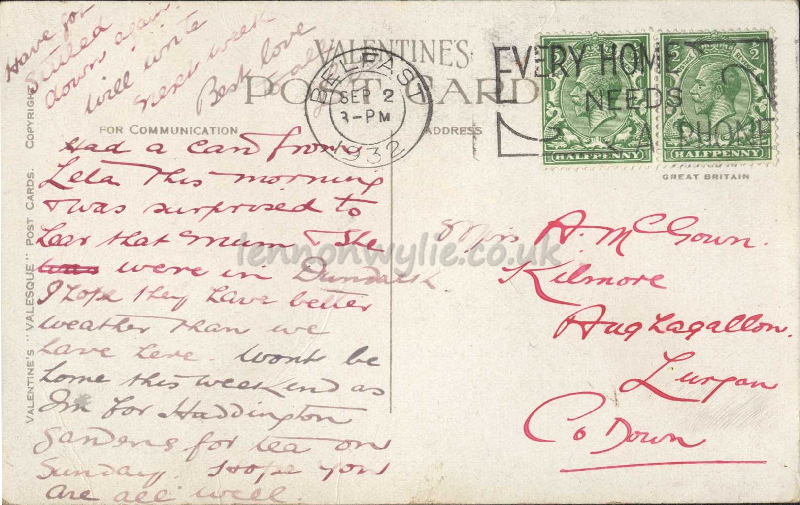 Have you
Settled
down again
Will write
next week
Best love
VALENTINES
POST CARD
FOR COMMUNICATION
ADDRESS
BELFAST
SEP 2
3-PM
1932
EVERY HOME
NEEDS
A PHONE
½ ½
HALFPENNY HALFPENNY
GREAT BRITAIN
VALENTINE'S "VALESQUE" POST CARDS. COPYRIGHT
Had a card from
Lela this morning
& was surprised to
hear that Mum & She
were in Dundalk
I hope they have better
weather than we
have here. Wont be
home this weekend as
Im for Haddington
Gardens for tea on
Sunday. Hope you
are all well.
Miss A. McGown.
Kilmore
Aughagallon.
Lurgan
Co Down
lennonwylie.co.uk